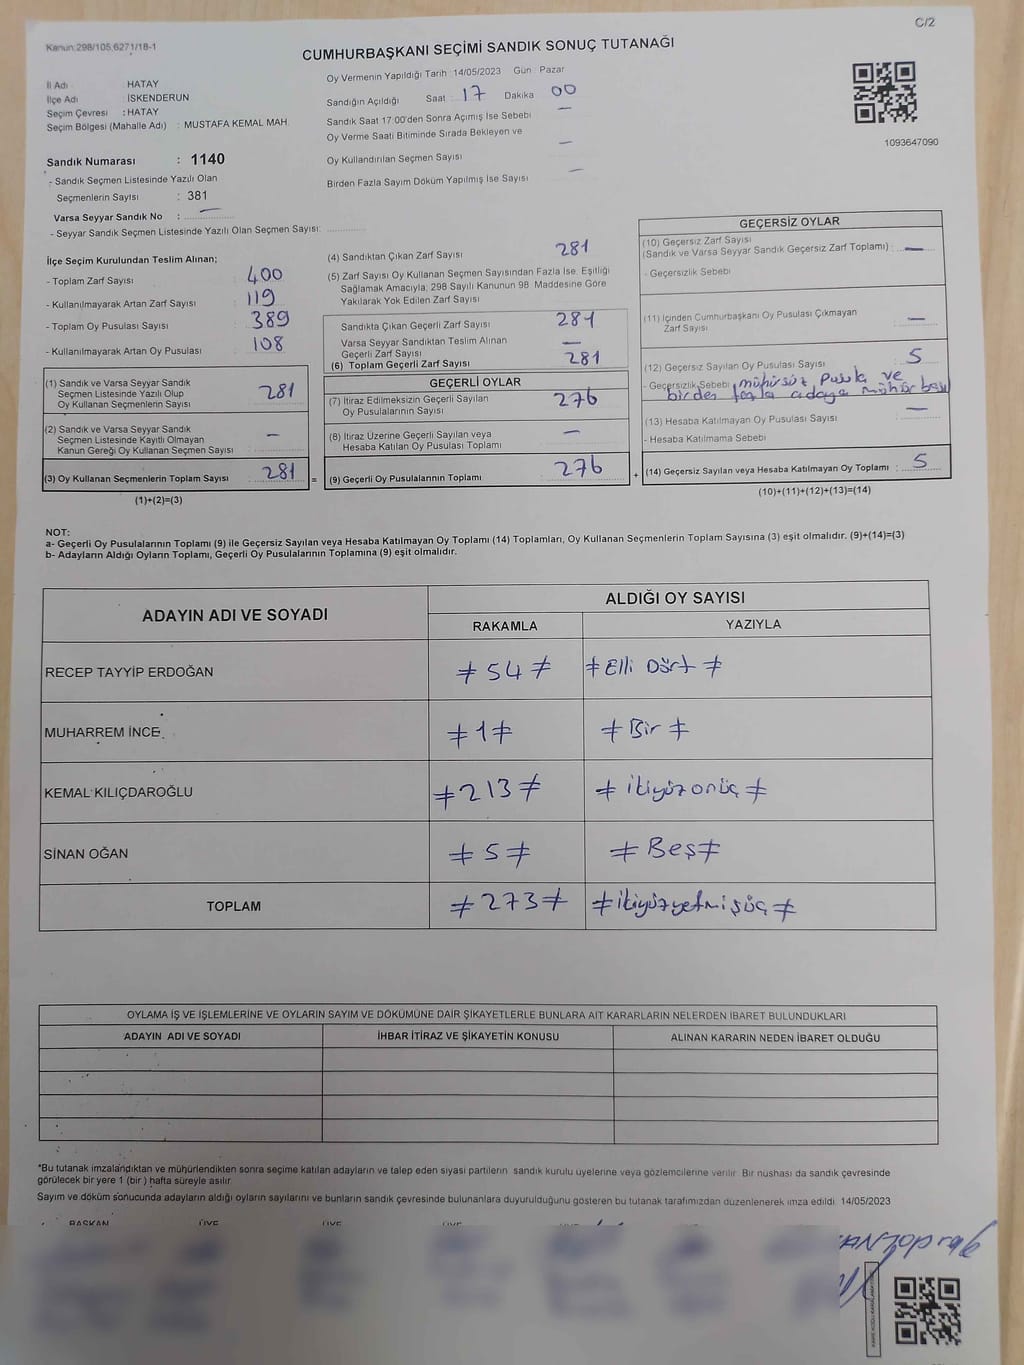 C/2
Kanun:298/105,6271/18-1
CUMHURBAŞKANI SEÇİMİ SANDIK SONUÇ TUTANAĞI
İl Adı : HATAY
İlçe Adı : İSKENDERUN
Seçim Çevresi : HATAY
Seçim Bölgesi (Mahalle Adı) : MUSTAFA KEMAL MAH.
Sandık Numarası : 1140
- Sandık Seçmen Listesinde Yazılı Olan
Seçmenlerin Sayısı : 381
Varsa Seyyar Sandık No : —
- Seyyar Sandık Seçmen Listesinde Yazılı Olan Seçmen Sayısı:
Oy Vermenin Yapıldığı Tarih : 14/05/2023 Gün : Pazar
Sandığın Açıldığı Saat : 17 Dakika : 00
Sandık Saat 17:00'den Sonra Açımış İse Sebebi —
Oy Verme Saati Bitiminde Sırada Bekleyen ve
Oy Kullandırılan Seçmen Sayısı —
Birden Fazla Sayım Döküm Yapılmış İse Sayısı —
1093647090
İlçe Seçim Kurulundan Teslim Alınan;
- Toplam Zarf Sayısı : 400
- Kullanılmayarak Artan Zarf Sayısı : 119
- Toplam Oy Pusulası Sayısı : 389
- Kullanılmayarak Artan Oy Pusulası : 108
(1) Sandık ve Varsa Seyyar Sandık
Seçmen Listesinde Yazılı Olup
Oy Kullanan Seçmenlerin Sayısı : 281
(2) Sandık ve Varsa Seyyar Sandık
Seçmen Listesinde Kayıtlı Olmayan
Kanun Gereği Oy Kullanan Seçmen Sayısı : —
(3) Oy Kullanan Seçmenlerin Toplam Sayısı : 281
(1)+(2)=(3)
(4) Sandıktan Çıkan Zarf Sayısı 281
(5) Zarf Sayısı Oy Kullanan Seçmen Sayısından Fazla İse, Eşitliği
Sağlamak Amacıyla; 298 Sayılı Kanunun 98. Maddesine Göre
Yakılarak Yok Edilen Zarf Sayısı
Sandıkta Çıkan Geçerli Zarf Sayısı 281
Varsa Seyyar Sandıktan Teslim Alınan
Geçerli Zarf Sayısı —
(6) Toplam Geçerli Zarf Sayısı 281
GEÇERLİ OYLAR
(7) İtiraz Edilmeksizin Geçerli Sayılan
Oy Pusulalarının Sayısı : 276
(8) İtiraz Üzerine Geçerli Sayılan veya
Hesaba Katılan Oy Pusulası Toplamı : —
= (9) Geçerli Oy Pusulalarının Toplamı : 276
GEÇERSİZ OYLAR
(10) Geçersiz Zarf Sayısı
(Sandık ve Varsa Seyyar Sandık Geçersiz Zarf Toplamı) : —
- Geçersizlik Sebebi
(11) İçinden Cumhurbaşkanı Oy Pusulası Çıkmayan
Zarf Sayısı : —
(12) Geçersiz Sayılan Oy Pusulası Sayısı : 5
- Geçersizlik Sebebi mühürsüz pusula ve
birden fazla adaya mühür
(13) Hesaba Katılmayan Oy Pusulası Sayısı : —
- Hesaba Katılmama Sebebi
+ (14) Geçersiz Sayılan veya Hesaba Katılmayan Oy Toplamı : 5
(10)+(11)+(12)+(13)=(14)
NOT:
a- Geçerli Oy Pusulalarının Toplamı (9) ile Geçersiz Sayılan veya Hesaba Katılmayan Oy Toplamı (14) Toplamları, Oy Kullanan Seçmenlerin Toplam Sayısına (3) eşit olmalıdır. (9)+(14)=(3)
b- Adayların Aldığı Oyların Toplamı, Geçerli Oy Pusulalarının Toplamına (9) eşit olmalıdır.
ADAYIN ADI VE SOYADI
ALDIĞI OY SAYISI
RAKAMLA YAZIYLA
RECEP TAYYİP ERDOĞAN ≠ 54 ≠ ≠ Elli Dört ≠
MUHARREM İNCE ≠ 1 ≠ ≠ Bir ≠
KEMAL KILIÇDAROĞLU ≠ 213 ≠ ≠ ikiyüzonüç ≠
SİNAN OĞAN ≠ 5 ≠ ≠ Beş ≠
TOPLAM ≠ 273 ≠ ≠ ikiyüzyetmişüç ≠
OYLAMA İŞ VE İŞLEMLERİNE VE OYLARIN SAYIM VE DÖKÜMÜNE DAİR ŞİKAYETLERLE BUNLARA AİT KARARLARIN NELERDEN İBARET BULUNDUKLARI
ADAYIN ADI VE SOYADI İHBAR İTİRAZ VE ŞİKAYETİN KONUSU ALINAN KARARIN NEDEN İBARET OLDUĞU
*Bu tutanak imzalandıktan ve mühürlendikten sonra seçime katılan adayların ve talep eden siyasi partilerin sandık kurulu üyelerine veya gözlemcilerine verilir. Bir nushası da sandık çevresinde
görülecek bir yere 1 (bir ) hafta süreyle asılır.
Sayım ve döküm sonucunda adayların aldığı oyların sayılarını ve bunların sandık çevresinde bulunanlara duyurulduğunu gösteren bu tutanak tarafımızdan düzenlenerek imza edildi. 14/05/2023
BAŞKAN ÜYE ÜYE ÜYE ÜYE